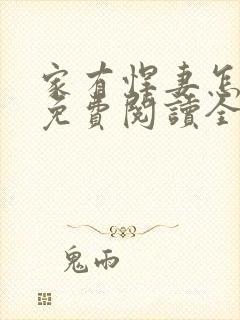 家有悍妻怎
免費閱讀全
鬼雨